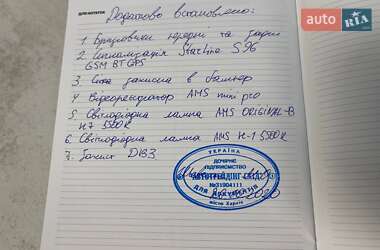 ДЛЯ НОТАТОК
Додатково встановлено:
1. Бризговики передні та задні
2. Сигналізація StarLine S96
GSM BT GPS
3. Сітка захисна в бампер
4. Відеореєстратор AMS mini pro
5. Світлодіодна лампа AMS ORIGINAL-B
H7 5500K
6. Світлодіодна лампа AMS H-1 5500K
7. Захист ДВЗ
УКРАЇНА
ДОЧІРНЄ
ПІДПРИЄМСТВО
№31804111
ДЛЯ ДОКУМЕНТІВ
місто Харків
AUTO RIA .com